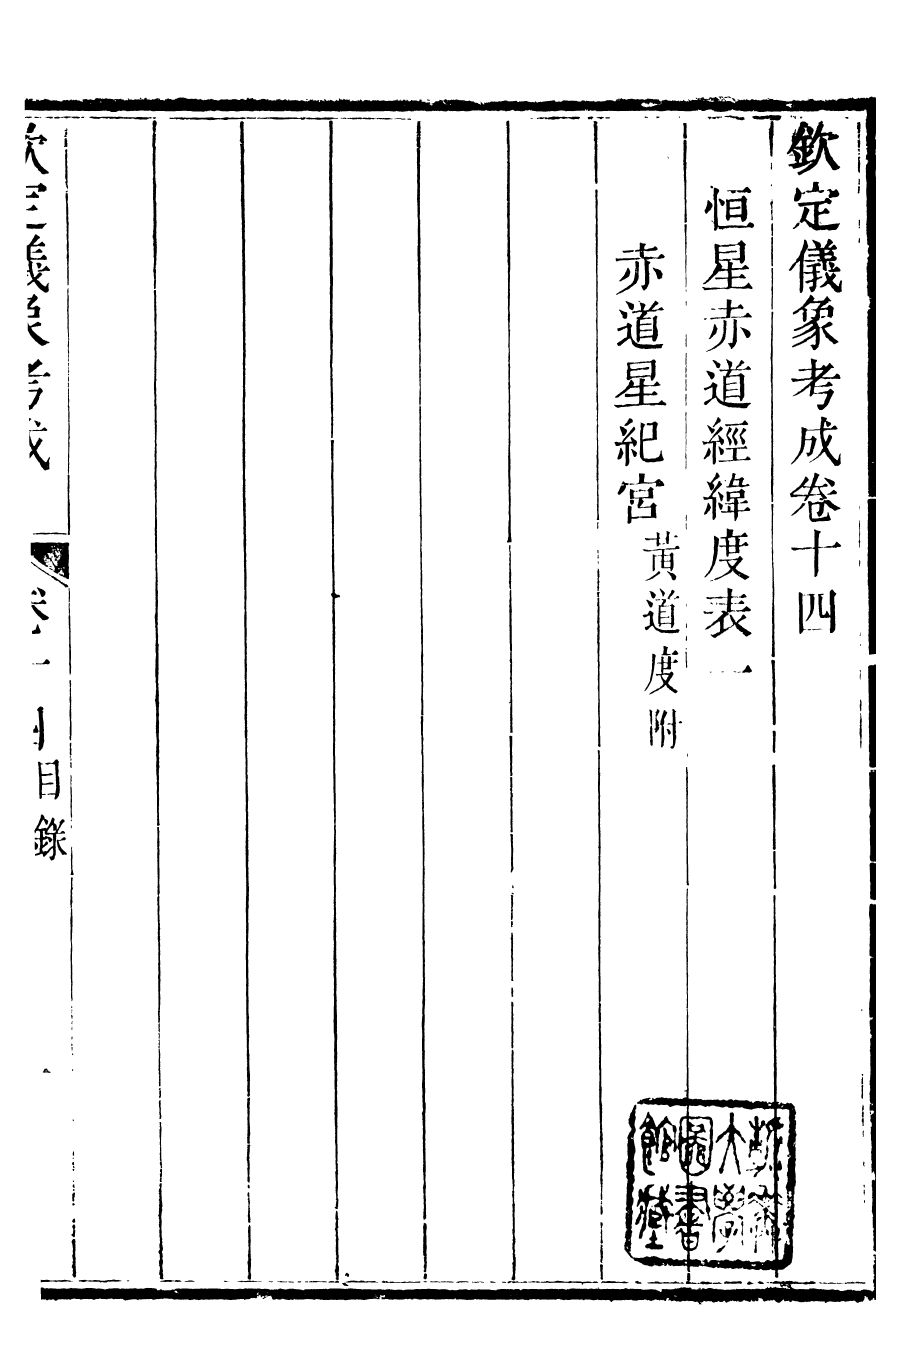 欽定儀象考成卷十四
恒星赤道經緯度表一
赤道星紀宮 黃道度附
欽定儀象考成 卷十四目錄
浙江大學圖書館藏